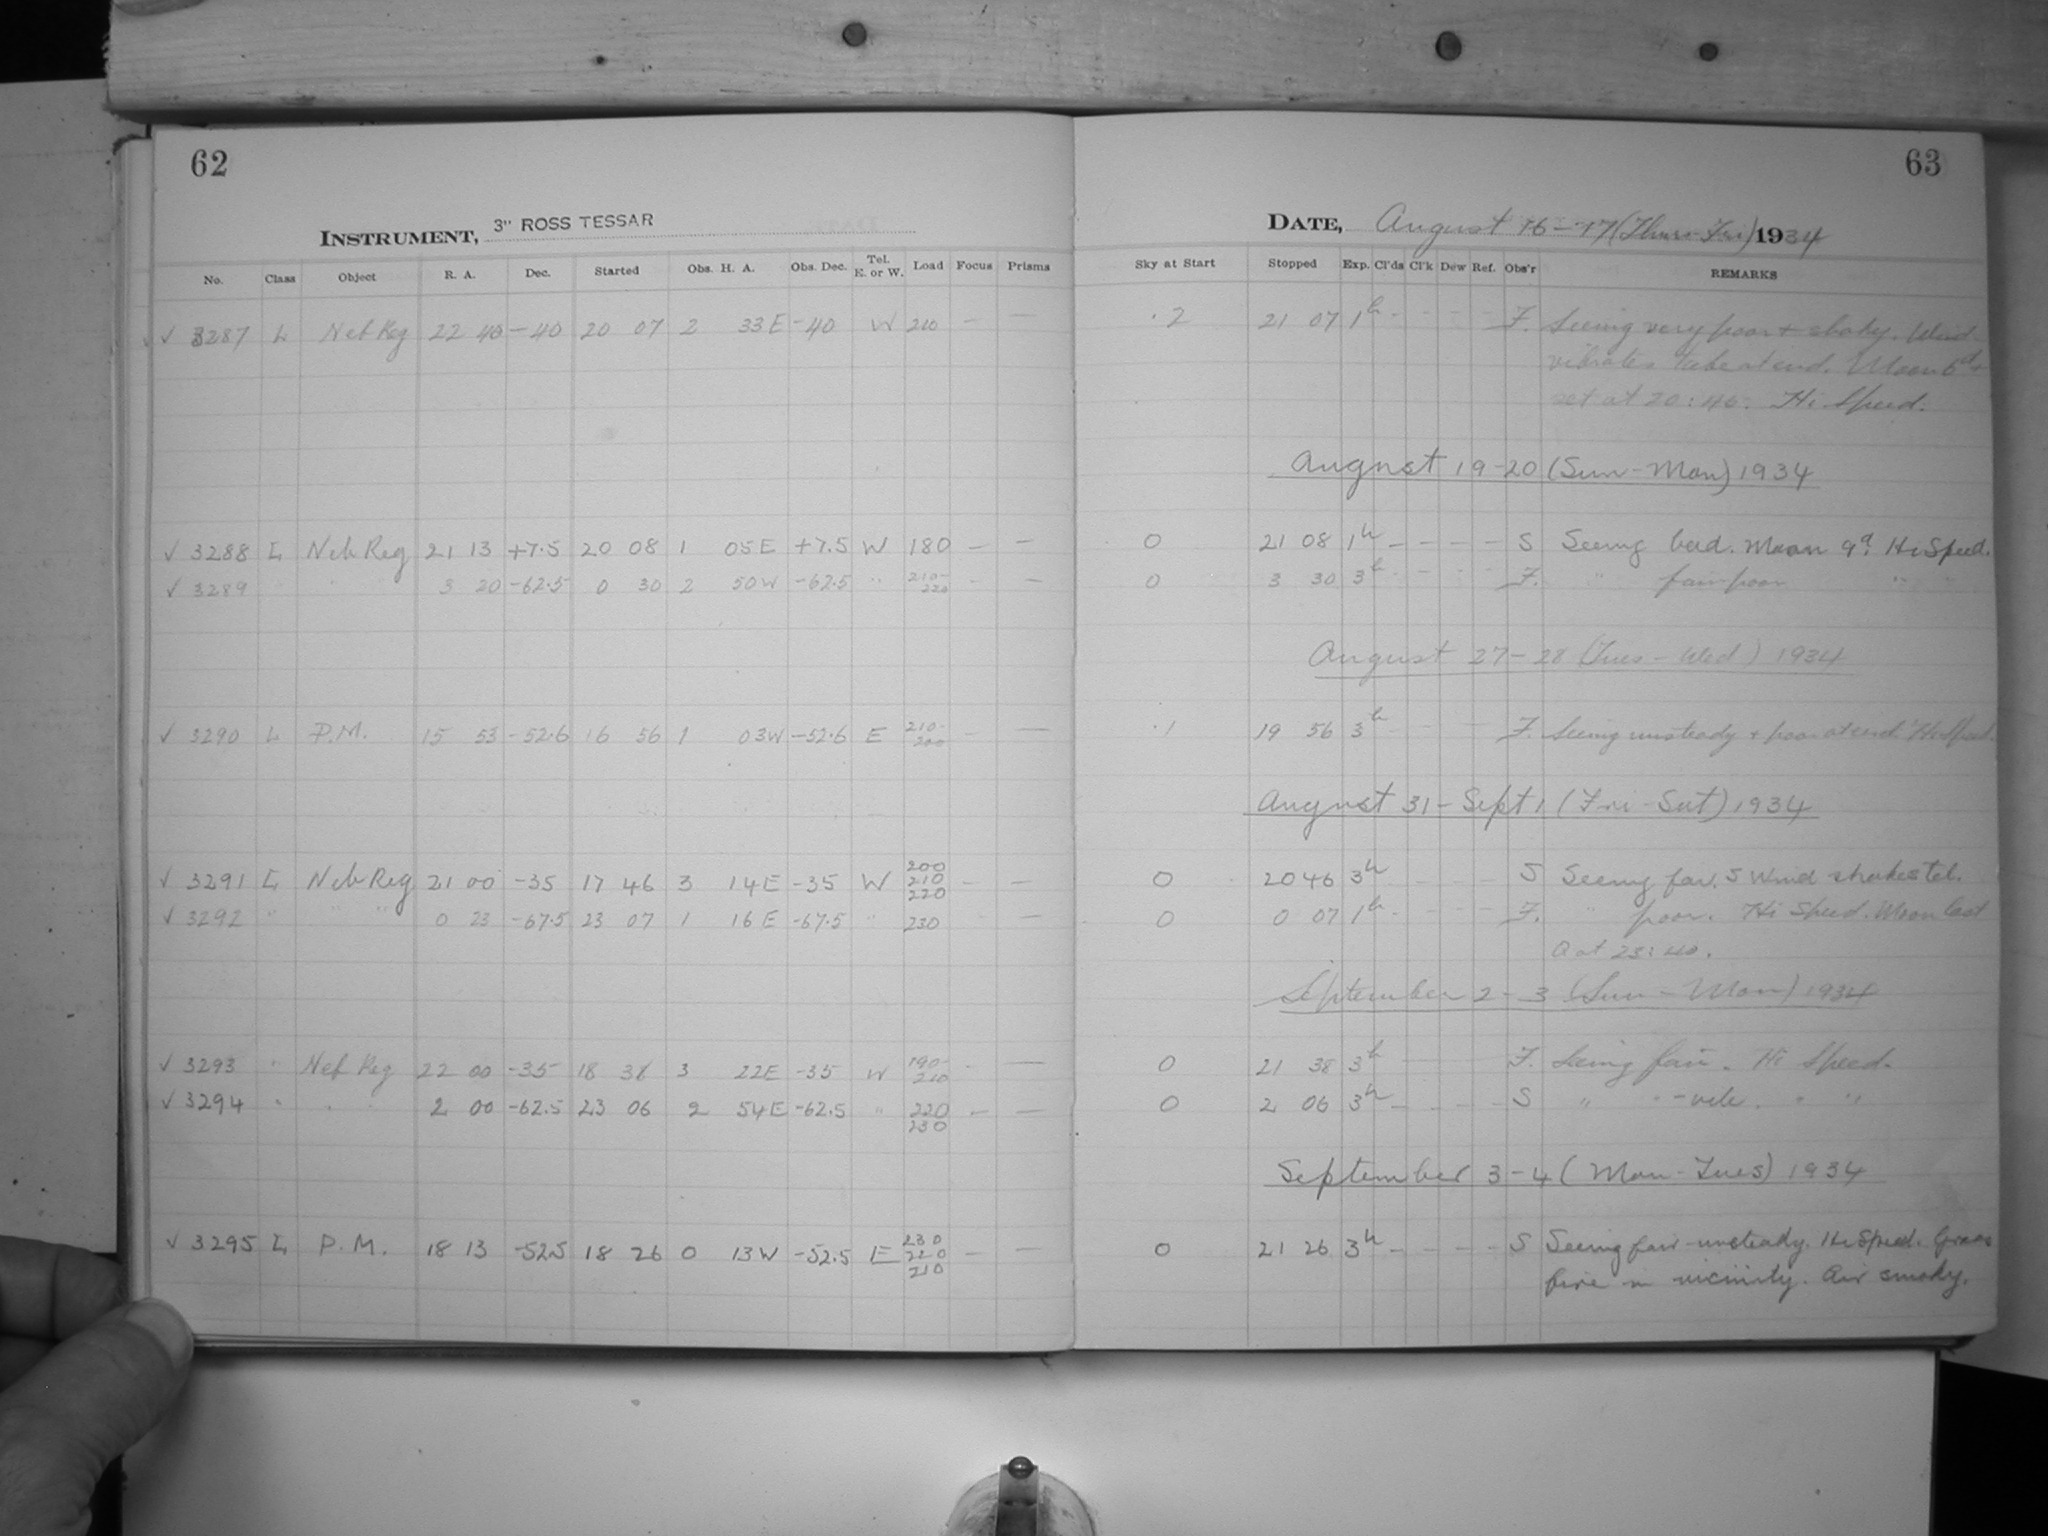 62
INSTRUMENT, 3" ROSS TESSAR
No. Class Object R. A. Dec. Started Obs. H. A. Obs. Dec. Tel. E. or W. Load Focus Prisms
√ 3287 L Neb Reg 22 40 -40 20 07 2 33 E -40 W 210 — —
√ 3288 L Neb Reg 21 13 +7.5 20 08 1 05 E +7.5 W 180 — —
√ 3289 " " 3 20 -62.5 0 30 2 50 W -62.5 " 210- 220 - —
√ 3290 L P.M. 15 53 -52.6 16 56 1 03 W -52.6 E 210- 200 - —
√ 3291 L Neb Reg 21 00 -35 17 46 3 14 E -35 W 200 210 220 - —
√ 3292 " " " 0 23 -67.5 23 07 1 16 E -67.5 " 230 - —
√ 3293 " Neb Reg 22 00 -35 18 38 3 22 E -35 W 190- 210 - —
√ 3294 " " " 2 00 -62.5 23 06 2 54 E -62.5 " 220 230 — —
√ 3295 L P.M. 18 13 -52.5 18 26 0 13 W -52.5 E 230 220 210 — —
63
DATE, August 16-17 (Thurs-Fri) 1934
Sky at Start Stopped Exp. Cl'ds Cl'k Dew Ref. Obs'r REMARKS
.2 21 07 1h - - - - F. Seeing very poor + shaky. Wind
vibrates tube at end. Moon 6d +
set at 20:46. Hi Speed.
August 19-20 (Sun-Mon) 1934
0 21 08 1h - - - - S Seeing bad. Moon 9d. Hi Speed.
0 3 30 3h - - - - F. " fair poor " "
August 27-28 (Tues-Wed) 1934
.1 19 56 3h - - - F. Seeing unsteady + poor at end Hi Speed.
August 31-Sept 1 (Fri-Sat) 1934
0 20 46 3h - - - - S Seeing fair. S Wind shakes tel.
0 0 07 1h - - - - F. " poor. Hi Speed. Moon last
Q at 23:40.
September 2-3 (Sun-Mon) 1934
0 21 38 3h - - - F. Seeing fair. Hi Speed.
0 2 06 3h - - - - S " " -vile. " "
September 3-4 (Mon-Tues) 1934
0 21 26 3h - - - - S Seeing fair-unsteady. Hi Speed. Grass
fire in vicinity. Air smoky.